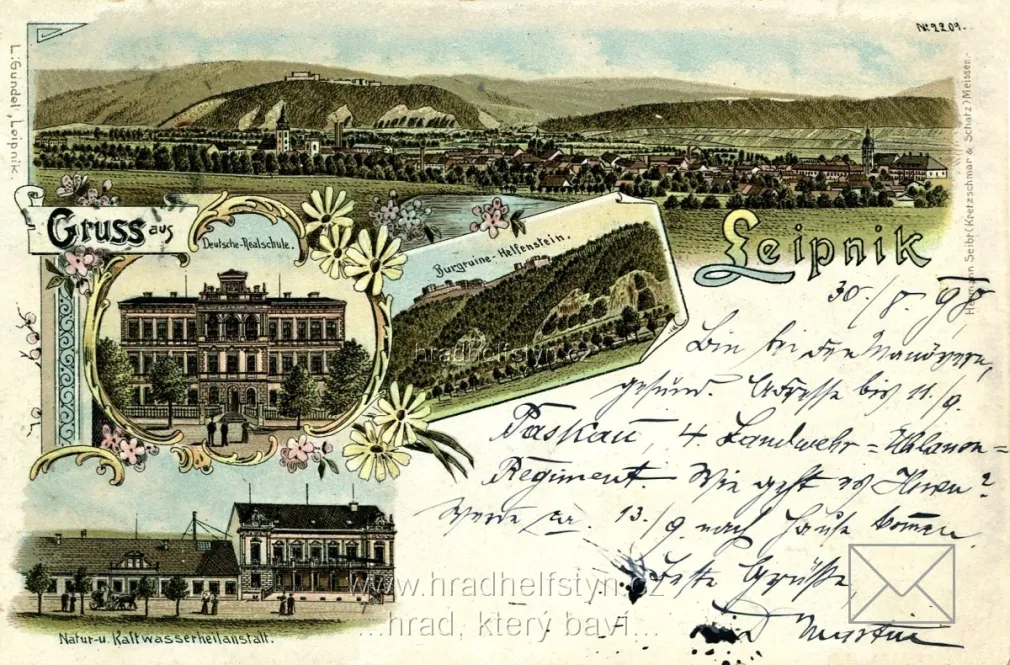 No 2209.
L. Gundel, Leipnik
Hermann Seibt (Kretzschmar & Schatz) Meissen.
Gruss aus
Leipnik
Deutsche-Realschule.
Burgruine-Helfenstein.
hradhelfstyn.cz
30./8. 98
Bin bei den Manövern,
gesund. Adresse bis 11./9.
Paskau, 4. Landwehr-Uhlanen-
Regiment. Wie geht es Ihnen?
Werde ca. 13./9 nach Hause kommen.
Beste Grüsse
www.hradhelfstyn.cz
...hrad, který baví...
Natur-u. Kaltwasserheilanstalt.